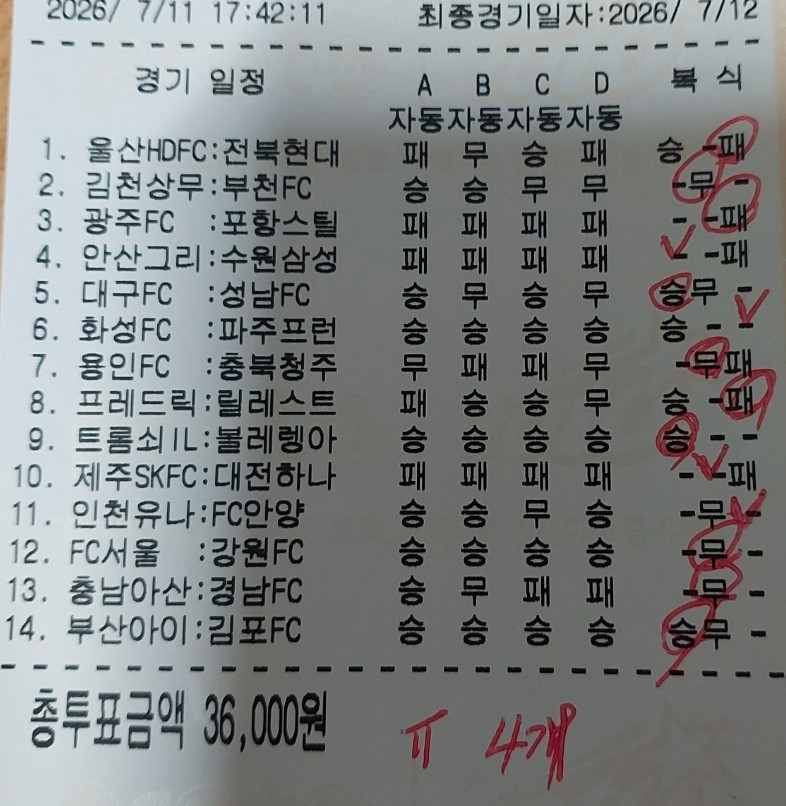 2026/ 7/11 17:42:11 최종경기일자:2026/ 7/12
경기 일정 A B C D 복 식
자동 자동 자동 자동
1. 울산HDFC:전북현대 패 무 승 패 승 - 패
2. 김천상무:부천FC 승 승 무 무 - 무 -
3. 광주FC :포항스틸 패 패 패 패 - - 패
4. 안산그리:수원삼성 패 패 패 패 - - 패
5. 대구FC :성남FC 승 무 승 무 승 무 -
6. 화성FC :파주프런 승 승 승 승 승 - -
7. 용인FC :충북청주 무 패 패 무 - 무 패
8. 프레드릭:릴레스트 패 승 승 무 승 - 패
9. 트롬쇠IL:볼레렝아 승 승 승 승 승 - -
10. 제주SKFC:대전하나 패 패 패 패 - - 패
11. 인천유나:FC안양 승 승 무 승 - 무 -
12. FC서울 :강원FC 승 승 승 승 - 무 -
13. 충남아산:경남FC 승 무 패 패 - 무 -
14. 부산아이:김포FC 승 승 승 승 승 무 -
총투표금액 36,000원
4개